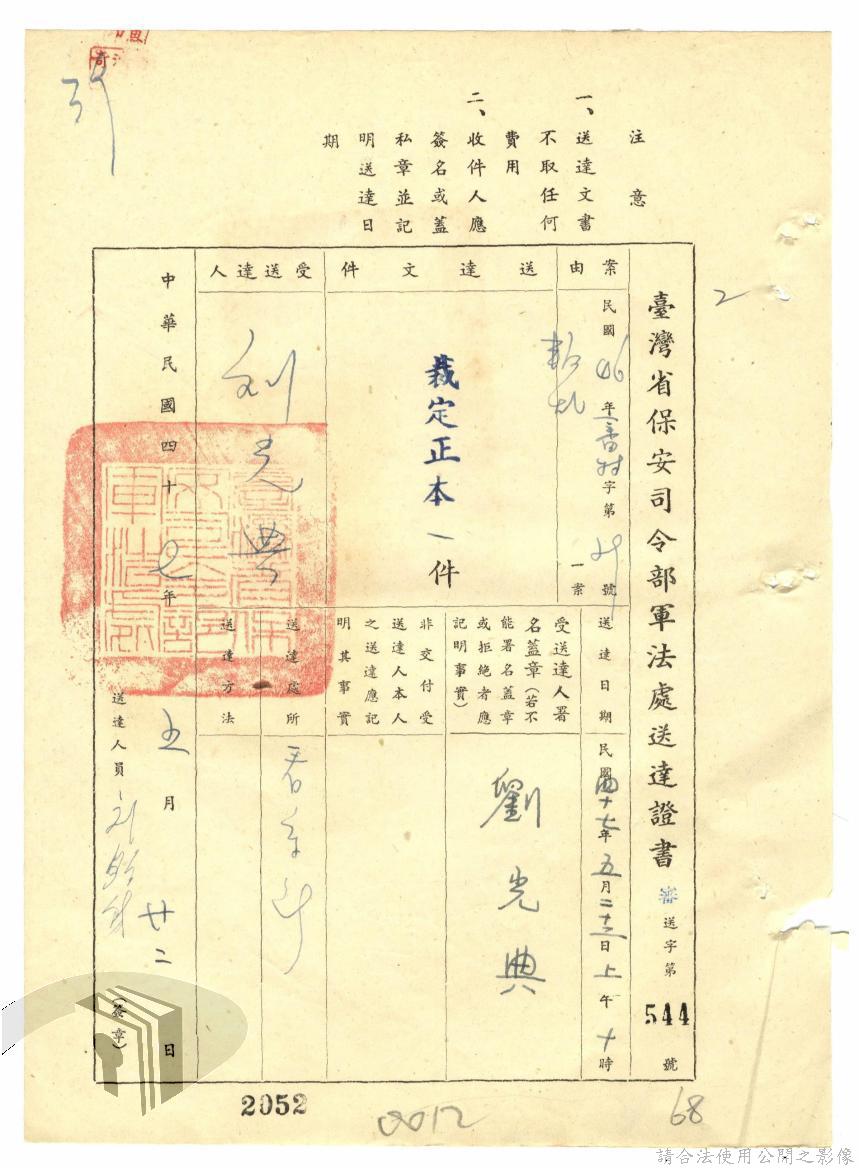 注意
一、送達文書
不取任何
費用
二、收件人應
簽名或蓋
私章並記
明送達日
期
臺灣省保安司令部軍法處送達證書 審 送字第 544 號
案由
民國46年審字第 號
叛亂
一案
送達文件
裁定正本一件
受送達人
刘光典
送達日期
民國四十七年五月二十三日上午十時
受送達人署
名蓋章(若不
能署名蓋章
或拒絕者應
記明事實)
劉光典
非交付受
送達人本人
之送達應記
明其事實
送達處所
看守所
送達方法
中華民國四十七年五月廿二日
送達人員
(簽章)
2
2052
0012
68
請合法使用公開之影像